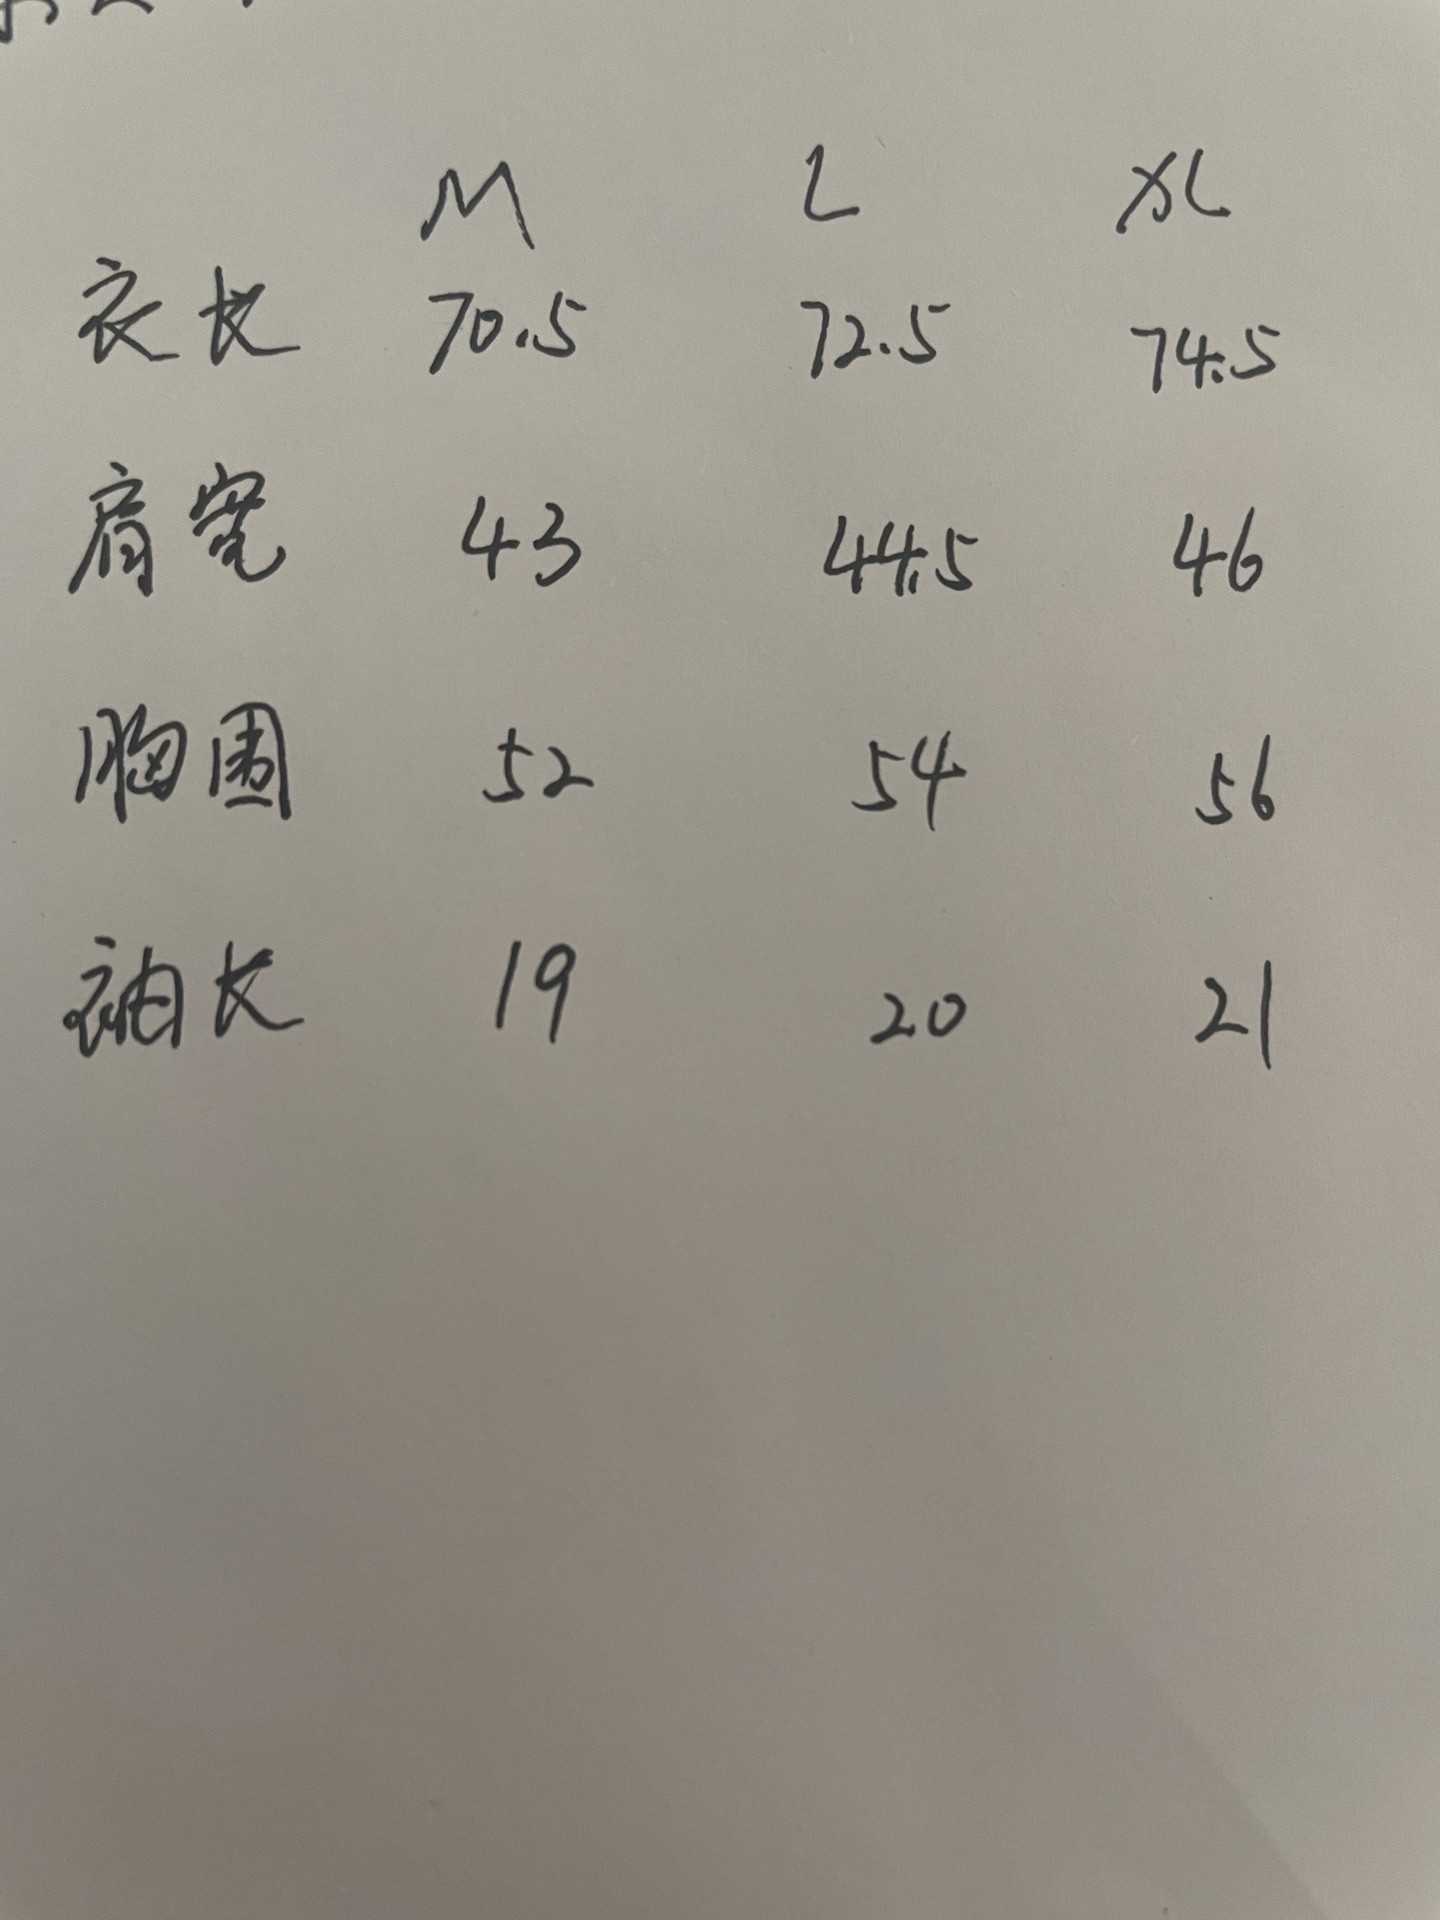 M L XL
衣长 70.5 72.5 74.5
肩宽 43 44.5 46
胸围 52 54 56
袖长 19 20 21